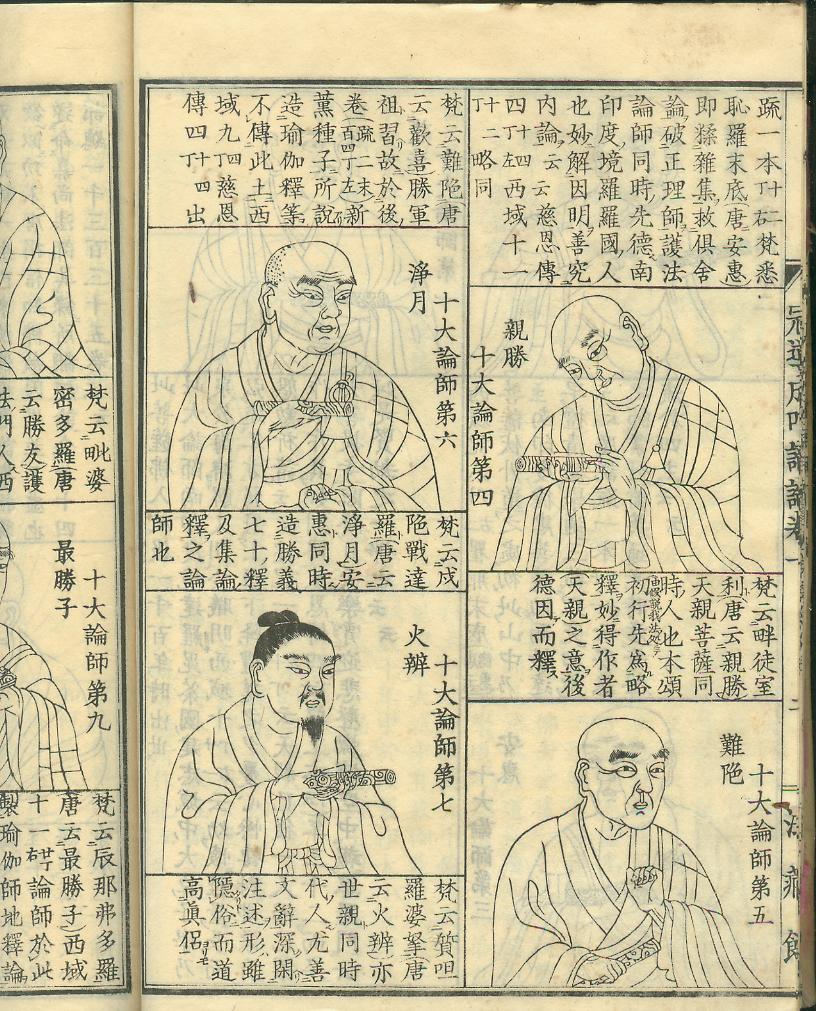 疏一本丁十二右梵悉
恥羅末底唐安惠
即糅雜集救俱舍
論破正理師護法
論師同時先德南
印度境羅羅國人
也妙解因明善究
內論云云慈恩傳
四丁十四左西域十一
丁十二略同
十大論師第四
親勝
梵云畔徒室
利唐云親勝
天親菩薩同
時人也本頌
初行先爲略
釋妙得作者
天親之意後
德因而釋
十大論師第五
難陁
梵云難陁唐
云歡喜勝軍
祖習故於後
卷疏二末百四丁左新
薰種子所說
造瑜伽釋等
不傳此土西
域九丁四慈恩
傳四丁十四出
十大論師第六
淨月
梵云戍
陁戰達
羅唐云
淨月安
惠同時
造勝義
七十釋
及集論
釋之論
師也
十大論師第七
火辨
梵云質呾
羅婆拏唐
云火辨亦
世親同時
代人尤善
文辭深閑
注述形雖
隱俗而道
高眞侶
梵云毗婆
密多羅唐
云勝友護
法門人西
十大論師第九
最勝子
梵云辰那弗多羅
唐云最勝子西域
十一論師於此
製瑜伽師地釋論